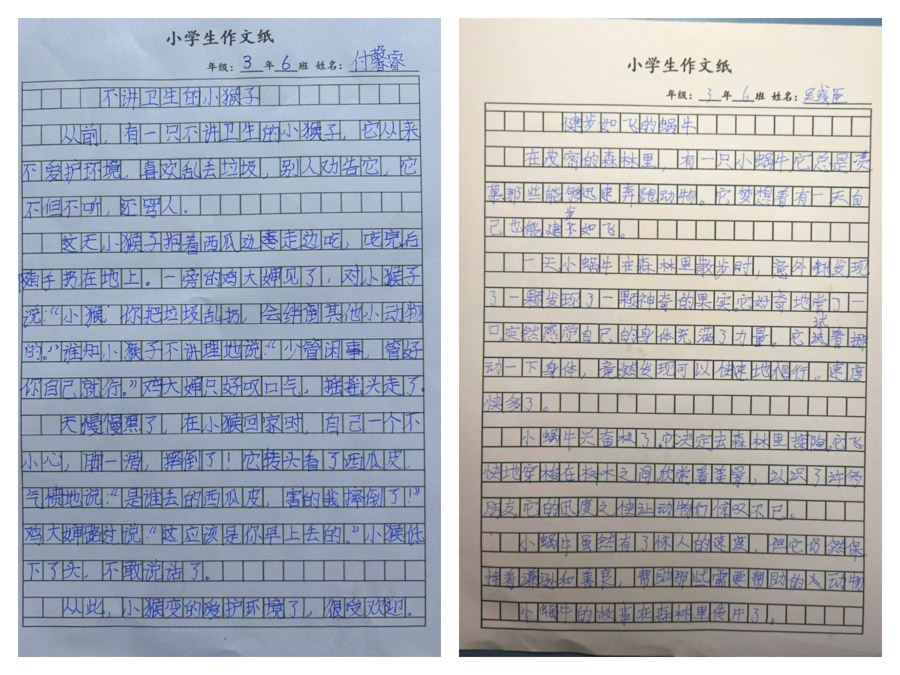 小学生作文纸
年级：3 年 6 班 姓名：付馨睿
不讲卫生的小猴子
从前，有一只不讲卫生的小猴子，它从来
不爱护环境，喜欢乱丢垃圾，别人劝告它，它
不但不听，还骂人。
这天小猴子抱着西瓜边走边吃，吃完后
随手扔在地上。一旁的鸡大婶见了，对小猴子
说：“小猴，你把垃圾乱扔，会绊倒其他小动物
的。”谁知小猴子不讲理地说：“少管闲事，管好
你自己就行。”鸡大婶只好叹口气，摇摇头走了。
天慢慢黑了，在小猴回家时，自己一个不
小心，脚一滑，摔倒了！它转头看了西瓜皮，
气愤地说：“是谁丢的西瓜皮，害的我摔倒了！”
鸡大婶路过说：“这应该是你早上丢的。”小猴低
下了头，不敢说话了。
从此，小猴变的爱护环境了，很受欢迎。
小学生作文纸
年级：3 年 6 班 姓名：
健步如飞的蜗牛
在茂密的森林里，有一只小蜗牛它总是羡
慕那些能够迅速奔跑动物。它梦想着有一天自
己也能健步如飞。
一天小蜗牛在森林里散步时，意外发现
了一颗发现了一颗神奇的果实它好奇地尝了一
口突然感觉自己的身体充满了力量。它试着挪
动一下身体，竟然发现可以快速地爬行。速度
快多了。
小蜗牛兴奋极了，它决定去森林里探险它飞
快地穿梭在树木之间欣赏着美景，认识了许多
朋友它的迅度之快让动物们惊叹不已。
小蜗牛虽然有了惊人的速度，但它仍然保
持着谦逊和善良，帮助那些需要帮助的动物
小蜗牛的故事在森林里传开了。